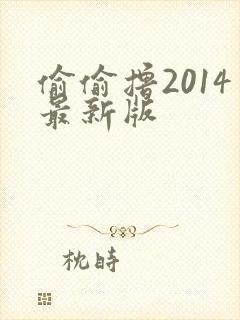 偷偷撸2014
最新版
枕時